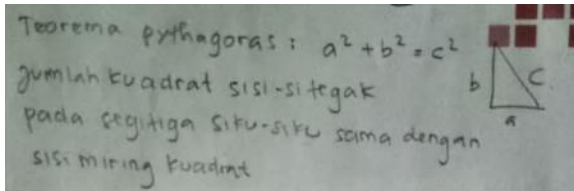 Teorema pythagoras : a² + b² = c²
Jumlah kuadrat sisi-sitegak
pada segitiga siku-siku sama dengan
sisi miring kuadrat
b
C
a